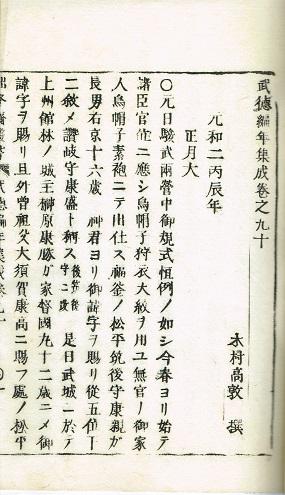 武德編年集成卷之九十
木村高敦 撰
元和二丙辰年
正月大
〇元日駿武兩營中御規式恆例ノ如シ今春ヨリ始テ
諸臣官位ニ應シ烏帽子狩衣大紋ヲ用ユ無官ノ御家
人烏帽子素袍ニテ出仕ス福釜ノ松平筑後守康親ガ
長男右京十六歳 神君ヨリ御諱字ヲ賜リ從五位下
ニ敘メ讃岐守康盛ト稱ス 是日武城ニ於テ
上州館林ノ城主榊原康勝ガ家督國九十二歳ニメ御
諱字ヲ賜リ且外曽祖父大須賀康高ニ賜フ處ノ松平